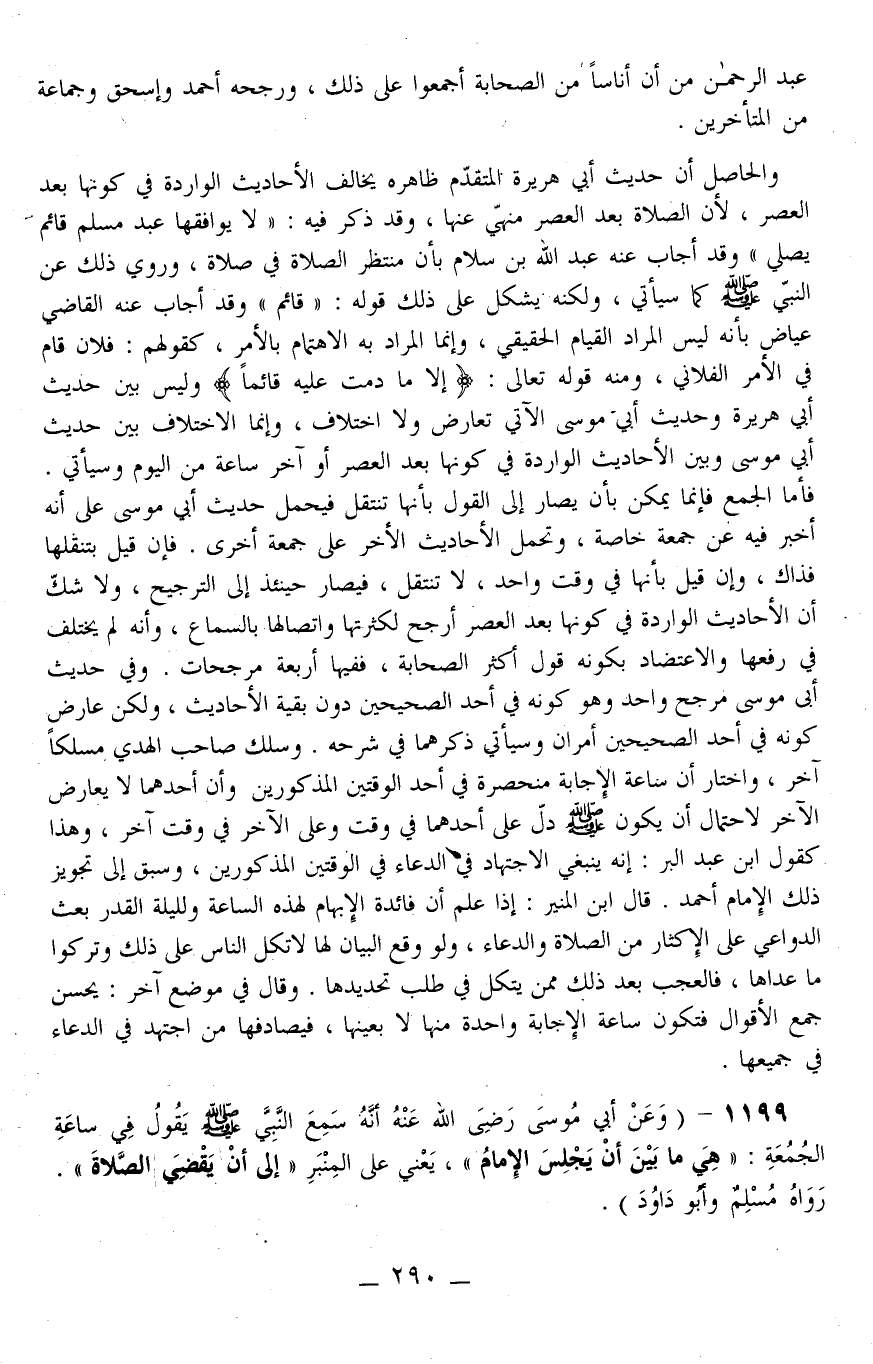 عبد الرحمٰن من أن أناساً من الصحابة أجمعوا على ذلك ، ورجحه أحمد وإسحق وجماعة
من المتأخرين .
والحاصل أن حديث أبي هريرة المتقدّم ظاهره يخالف الأحاديث الواردة في كونها بعد
العصر ، لأن الصلاة بعد العصر منهيّ عنها ، وقد ذكر فيه : « لا يوافقها عبد مسلم قائم
يصلي » وقد أجاب عنه عبد الله بن سلام بأن منتظر الصلاة في صلاة ، وروي ذلك عن
النبيّ ﷺ كما سيأتي ، ولكنه يشكل على ذلك قوله : « قائم » وقد أجاب عنه القاضي
عياض بأنه ليس المراد القيام الحقيقي ، وإنما المراد به الاهتمام بالأمر ، كقولهم : فلان قام
في الأمر الفلاني ، ومنه قوله تعالى : ﴿ إلا ما دمت عليه قائماً ﴾ وليس بين حديث
أبي هريرة وحديث أبي موسى الآتي تعارض ولا اختلاف ، وإنما الاختلاف بين حديث
أبي موسى وبين الأحاديث الواردة في كونها بعد العصر أو آخر ساعة من اليوم وسيأتي .
فأما الجمع فإنما يمكن بأن يصار إلى القول بأنها تنتقل فيحمل حديث أبي موسى على أنه
أخبر فيه عن جمعة خاصة ، وتحمل الأحاديث الأخر على جمعة أخرى . فإن قيل بتنقلها
فذاك ، وإن قيل بأنها في وقت واحد ، لا تنتقل ، فيصار حينئذ إلى الترجيح ، ولا شكّ
أن الأحاديث الواردة في كونها بعد العصر أرجح لكثرتها واتصالها بالسماع ، وأنه لم يختلف
في رفعها والاعتضاد بكونه قول أكثر الصحابة ، ففيها أربعة مرجحات . وفي حديث
أبى موسى مرجح واحد وهو كونه في أحد الصحيحين دون بقية الأحاديث ، ولكن عارض
كونه في أحد الصحيحين أمران وسيأتي ذكرهما في شرحه . وسلك صاحب الهدي مسلكاً
آخر ، واختار أن ساعة الإجابة منحصرة في أحد الوقتين المذكورين وأن أحدهما لا يعارض
الآخر لاحتمال أن يكون ﷺ دلّ على أحدهما في وقت وعلى الآخر في وقت آخر ، وهذا
كقول ابن عبد البر : إنه ينبغي الاجتهاد في الدعاء في الوقتين المذكورين ، وسبق إلى تجويز
ذلك الإمام أحمد . قال ابن المنير : إذا علم أن فائدة الإبهام لهذه الساعة ولليلة القدر بعث
الدواعي على الإكثار من الصلاة والدعاء ، ولو وقع البيان لها لاتكل الناس على ذلك وتركوا
ما عداها ، فالعجب بعد ذلك ممن يتكل في طلب تحديدها . وقال في موضع آخر : يحسن
جمع الأقوال فتكون ساعة الإجابة واحدة منها لا بعينها ، فيصادفها من اجتهد في الدعاء
في جميعها .
١١٩٩ – ( وَعَنْ أبي مُوسَى رَضِىَ الله عَنْهُ أنَّهُ سَمِعَ النَّبِيَّ ﷺ يَقُولُ فِي ساعَةِ
الجُمُعَةِ : « هِيَ ما بَيْنَ أنْ يَجْلِسَ الإمامُ » ، يَعْني على المِنْبَرِ « إلى أنْ يَقْضِيَ الصَّلاةَ » .
رَوَاهُ مُسْلِمٌ وأبُو دَاوُدَ ) .
– ٢٩٠ –